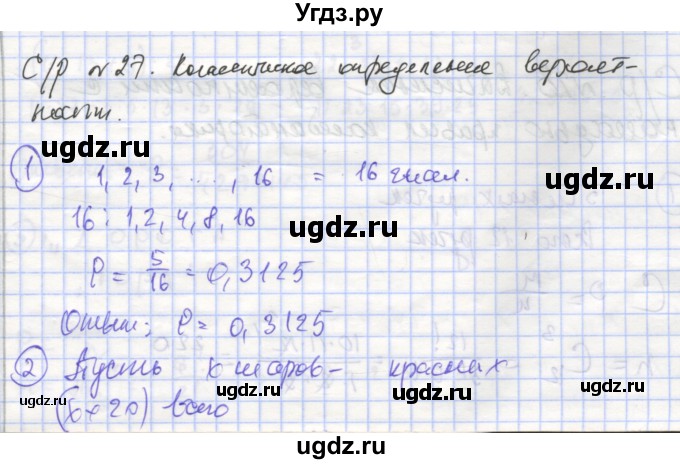 Угдз.ру
С/р №27. Классическое определение вероят-
ности.
1 1, 2, 3, ..., 16 = 16 чисел.
16 : 1, 2, 4, 8, 16
P = 5/16 = 0,3125
Ответ: P = 0,3125
2 Пусть x шаров - красных
(x+20) всего
ugdz.ru
ugdz.ru
ugdz.ru
ugdz.ru
ugdz.ru
ugdz.ru
ugdz.ru
ugdz.ru
ugdz.ru